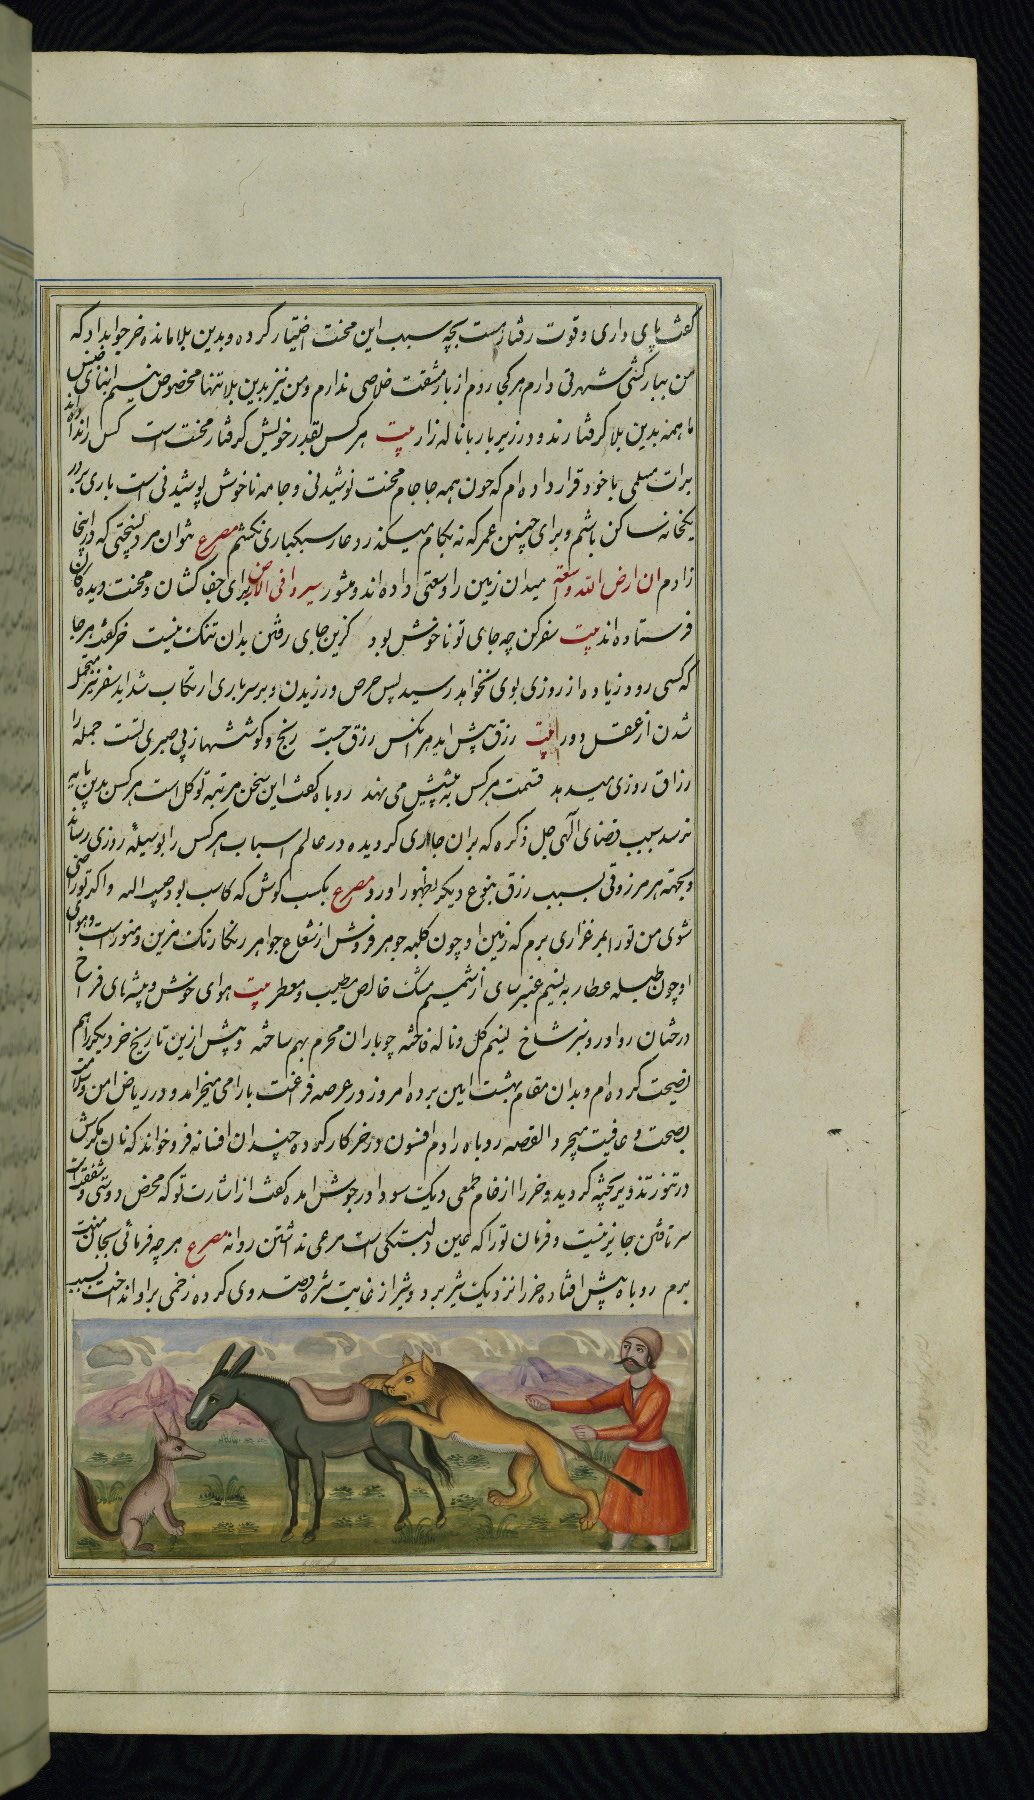 گفت پای داری و قوت رفتار هست بچه سبب این محنت اختیار کرده و بدین بلا مانده خر جوابداد که
من ببار کشی شهرتی دارم هر کجا روم از بار مشقت خلاصی ندارم و من نیز بدین بلا تنها مخصوص نیستم ابنای جنس
ما همه بدین بلا گرفتارند و در زیر بار با ناله زار بیت هر کس بقدر خویش گرفتار محنت است کس را نداده‌اند
برات مسلمی با خود قرار داده‌ام که چون همه جا جام محنت نوشیدنی و جامه ناخوش پوشیدنی است باری بر در
یکخانه ساکن باشم و برای چنین عمر که نه بکام میگذرد عار سبکباری نکشم مصرع نتوان مرد بسختی که در اینجا
زادم ان ارض الله واسعة میدان زمین را وسعتی داده‌اند و منشور سیروا فی الارض برای جفاکشان و محنت دیده کان
فرستاده‌اند بیت سفر کن چه جای تو ناخوش بود کزین جای رفتن بدان تنک نیست خر گفت هر جا
که کسی رود زیاده از روزی بوی نخواهد رسید پس حرص ورزیدن و بر سر باری ارتکاب شداید سفر نیز متحمل
شدن از عقل دور است بیت رزق پیش اید هر انکس رزق جست رنج و کوششها ز بی صبری تست جمله را
رزاق روزی میدهد قسمت هر کس به پیشش می نهد روباه گفت این سخن مرتبه توکل است هر کس بدین پایه
نرسد سبب قضای الهی جل ذکره که بران جاری گردیده در عالم اسباب هر کس را بوسیلهٔ روزی رساند
و بجهة هر مرزوقی بسبب رزق بنوع دیگر بظهور اورد مصرع بکسب کوش که کاسب بود حبیب اله و اگر تو راضی
شوی من تو را بمرغزاری برم که زمین او چون کلبه جوهر فروش از شعاع جواهر رنگارنگ مزین و منور است و هوای
او چون طبله عطار به نسیم عنبرسای از شمیم مشک خالص مطیب و معطر بیت هوای خوش و بیشه‌های فراخ
درختان رواور و سبز شاخ نسیم گل و ناله فاخته چو یاران محرم بهم ساخته و پیش ازین تاریخ خر دیگر را هم
نصیحت کرده‌ام و بدان مقام بهشت ایین برده امروز در عرصه فراغت بارامی میخرامد و در ریاض امن و سلامت
بصحت و عافیت میچرد القصه روباه را دم افسون در خر کار کرده چندان افسانه فرو خواند که نان مکرش
در تنور تزویر پخته گردید و خر را از خام طمعی دیک سودا در جوش امده گفت از اشارت تو که محض دوستی و شفقت است
سر تافتن جایز نیست و فرمان تو را که عین دلبستگی است مرعی نداشتن روا نه مصرع هر چه فرمائی بجان منت
برم روباه پیش افتاده خر را نزدیک شیر برد و شیر از غایت شره قصد وی کرده زخمی بر او انداخت بسبب